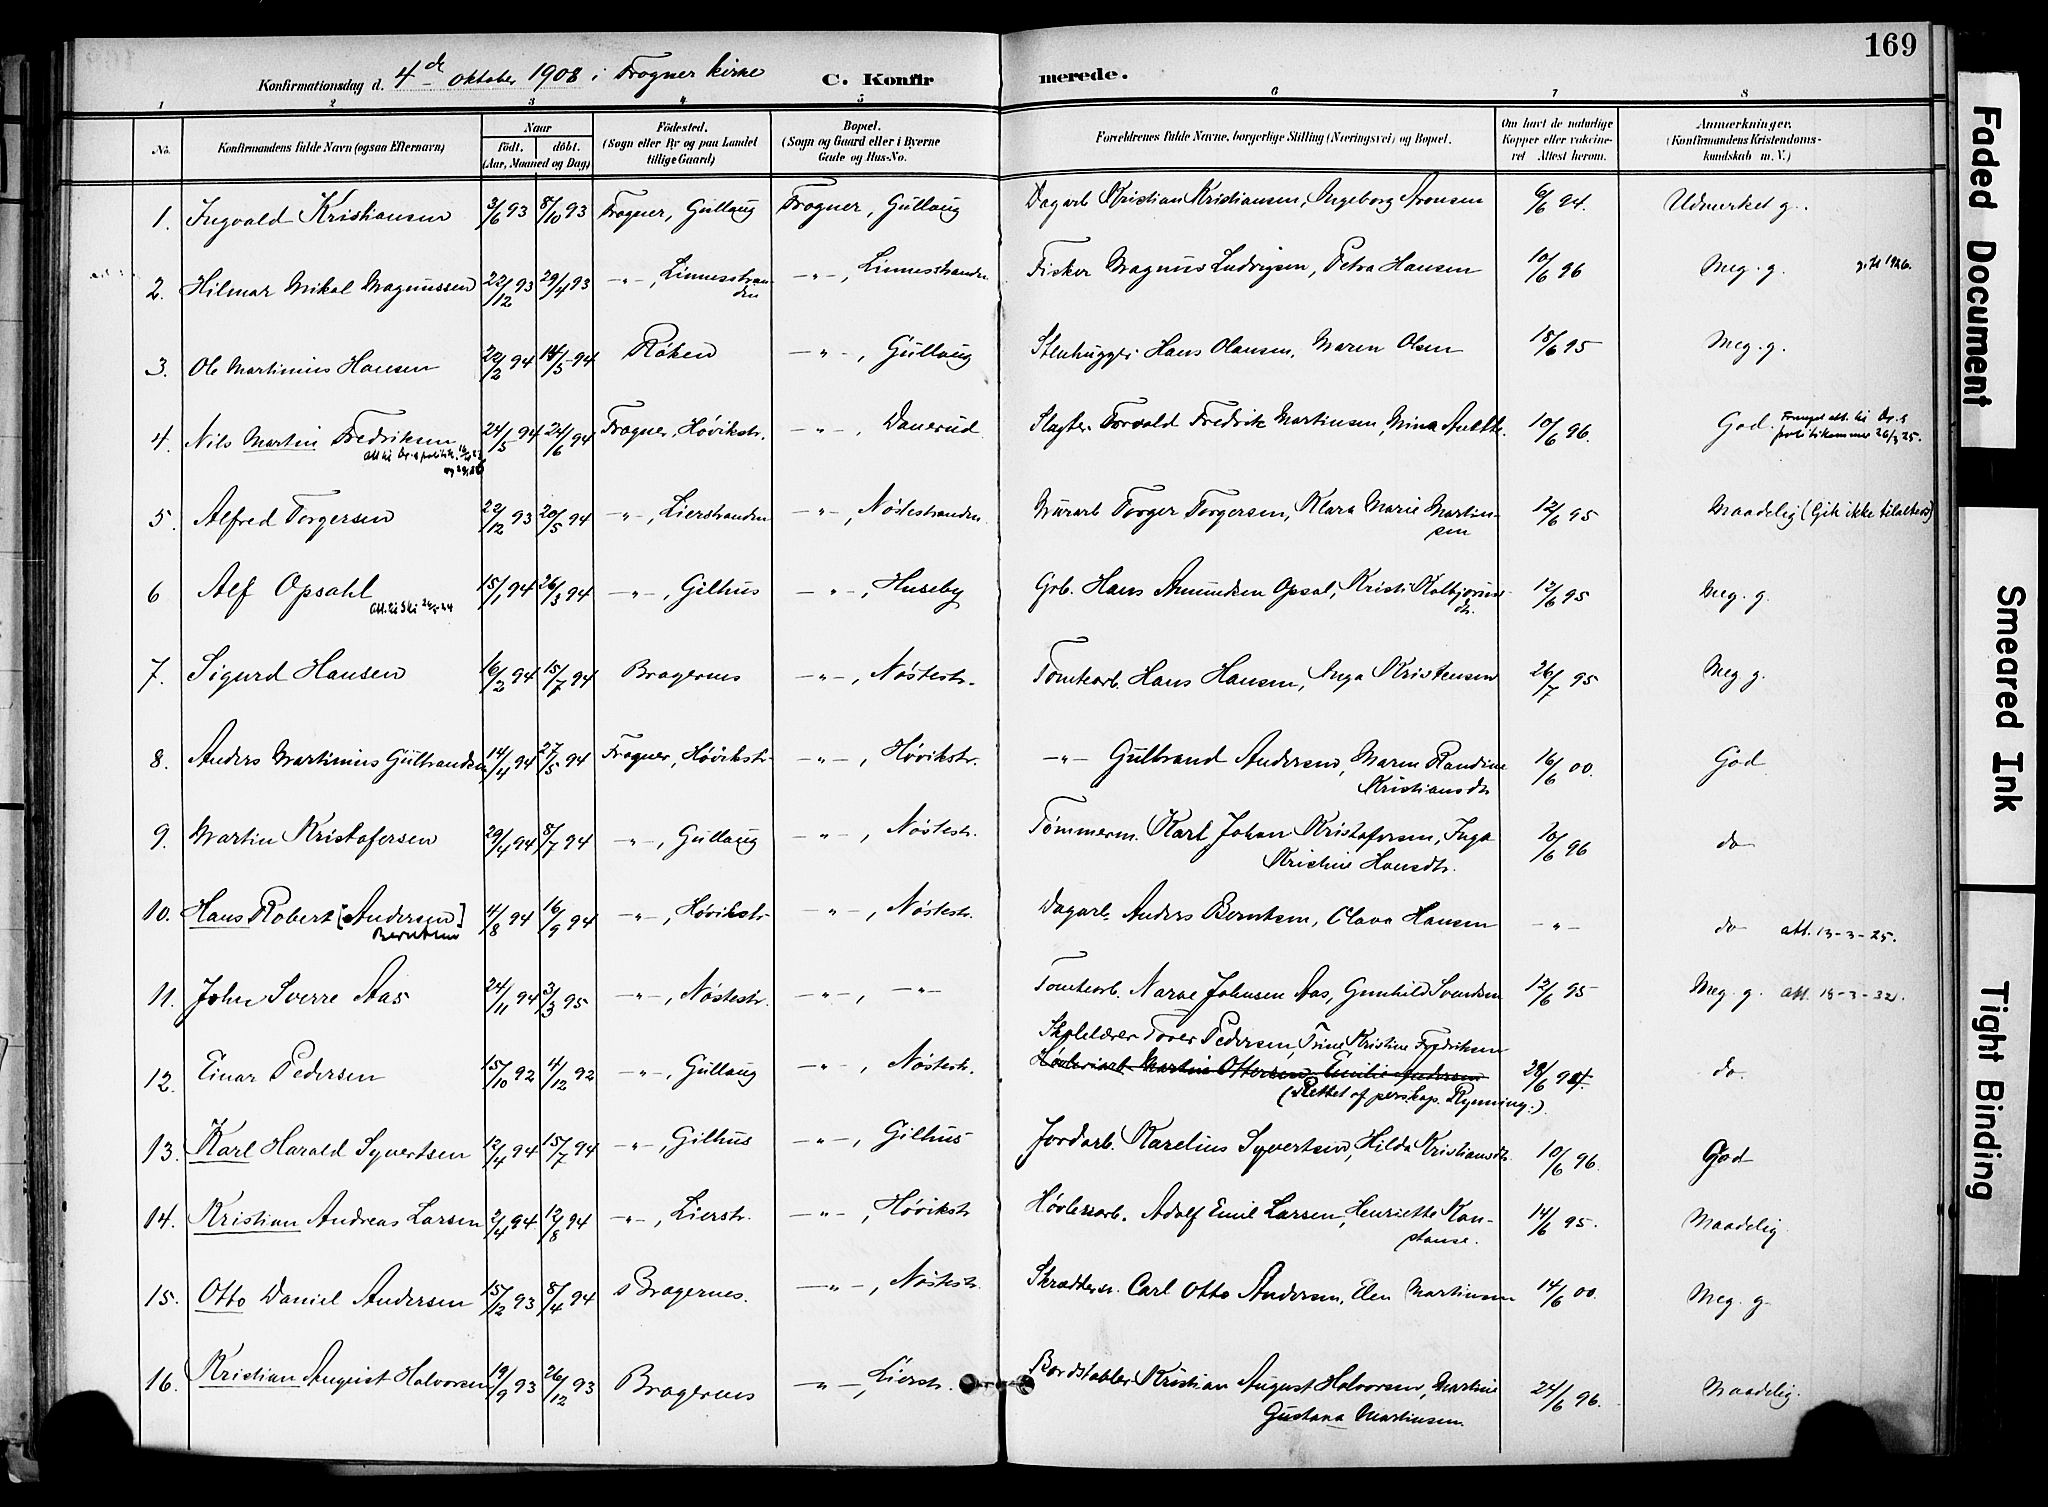 169
Konfirmationsdag d. 4de oktober 1908 i Frogner kirke C. Konfirmerede.
1 2 3 4 5 6 7 8
No. Konfirmandens fulde Navn (ogsaa Efternavn) Naar født. døbt. (Aar, Maaned og Dag) Fødested. (Sogn eller By og paa Landet tillige Gaard) Bopæl. (Sogn og Gaard eller i Byerne Gade og Hus-No. Forældrenes fulde Navne, borgerlige Stilling (Næringsvei) og Bopæl. Om havt de naturlige Kopper eller vakcineret Attest herom. Anmærkninger. (Konfirmandens Kristendomskundskab m. V.)
1. Ingvald Kristiansen 3/6 93 8/10 93 Frogner, Gullaug Frogner, Gullaug Dagarb. Kristian Kristiansen, Ingeborg Aronsen 6/6 94. Udmerket g.
2. Hilmar Mikal Magnussen 22/12 93 29/4 93 -"-, Linnesstranden -"-, Linnesstranden Fisker Magnus Ludvigsen, Petra Hansen 10/6 96 Meg. g. g. 1926.
3. Ole Martinius Hansen 22/2 94 14/5 94 Røken -"-, Gullaug Stenhugger Hans Olausen, Maren Olsen 18/6 95 Meg. g.
4. Nils Martin Fredriksen 24/5 94 24/6 94 Frogner, Høvikstr. -"-, Danerud Slagter Torvald Fredrik Martinsen, Mina 10/6 96. God.
5. Alfred Torgersen 22/12 93 20/5 94 -"-, Lierstranden -"-, Nøstestranden Murarb. Torger Torgersen, Klara Marie Martinsen 12/6 95 Maadelig (Gik ikke tilalters)
6 Alf Opsahl 15/1 94 26/3 94 -"-, Gilhus -"-, Huseby Grb. Hans Amundsen Opsal, Kristi Kolbjørnsdtr. 12/6 95 Meg. g.
7. Sigurd Hansen 16/2 94 15/7 94 Bragernes -"-, Nøstestr. Tomtearb. Hans Hansen, Inga Kristensen 26/7 95 Meg g.
8. Anders Martinius Gulbrandsen 14/4 94 27/5 94 Frogner, Høvikstr. -"-, Høvikstr. -"- Gulbrand Andersen, Maren Randine Kristiansdtr. 16/6 00. God
9. Martin Kristofersen 29/4 94 8/7 94 -"-, Gullaug -"-, Nøstestr. Tømmerm. Karl Johan Kristofersen, Inga Kristine Hansdtr. 10/6 96 do
10. Hans Robert [Andersen] Berntsen 4/8 94 16/9 94 -"-, Høvikstr. -"-, Nøstestr. Dagarb. Anders Berntsen, Olava Hansen -"- do att. 13-3-25.
11. John Sverre Aas 24/11 94 3/3 95 -"-, Nøstestr. -"-, -"- Tomtearb. Narve Johnsen Aas, Gunhild Svendsen 12/6 95 Meg. g. att. 15-3-32.
12. Einar Pedersen 15/10 92 4/12 92 -"-, Gullaug -"-, Nøstestr. Skolelærer Torer Pedersen, Trine Kristine Fredriksen
Høvleriarb. Martin Ottersen, Emilie Andersen 28/6 94. do.
(Rettet af perskap. Rynning.).
13. Karl Harald Syvertsen 12/4 94 15/7 94 -"-, Gilhus -"-, Gilhus Jordarb. Karelius Syvertsen, Hilda Kristiansdtr. 10/6 96. God
14. Kristian Andreas Larsen 2/4 94 12/8 94 -"-, Lierstr. -"-, Høvikstr. Høvleriarb. Adolf Emil Larsen, Henriette Konstanse. 14/6 95. Maadelig.
15. Otto Daniel Andersen 15/12 93 8/4 94 Bragernes. -"-, Nøstestr. Skrædder Carl Otto Andersen, Elen Martinsen 14/6 00. Meg. g.
16. Kristian August Halvorsen 19/9 93 26/12 93 Bragernes -"-, Lierstr. Bordstabler Kristian August Halvorsen, Martine Gustava Martinsen. 24/6 96. Maadelig.
Faded Document
Smeared Ink
Tight Binding